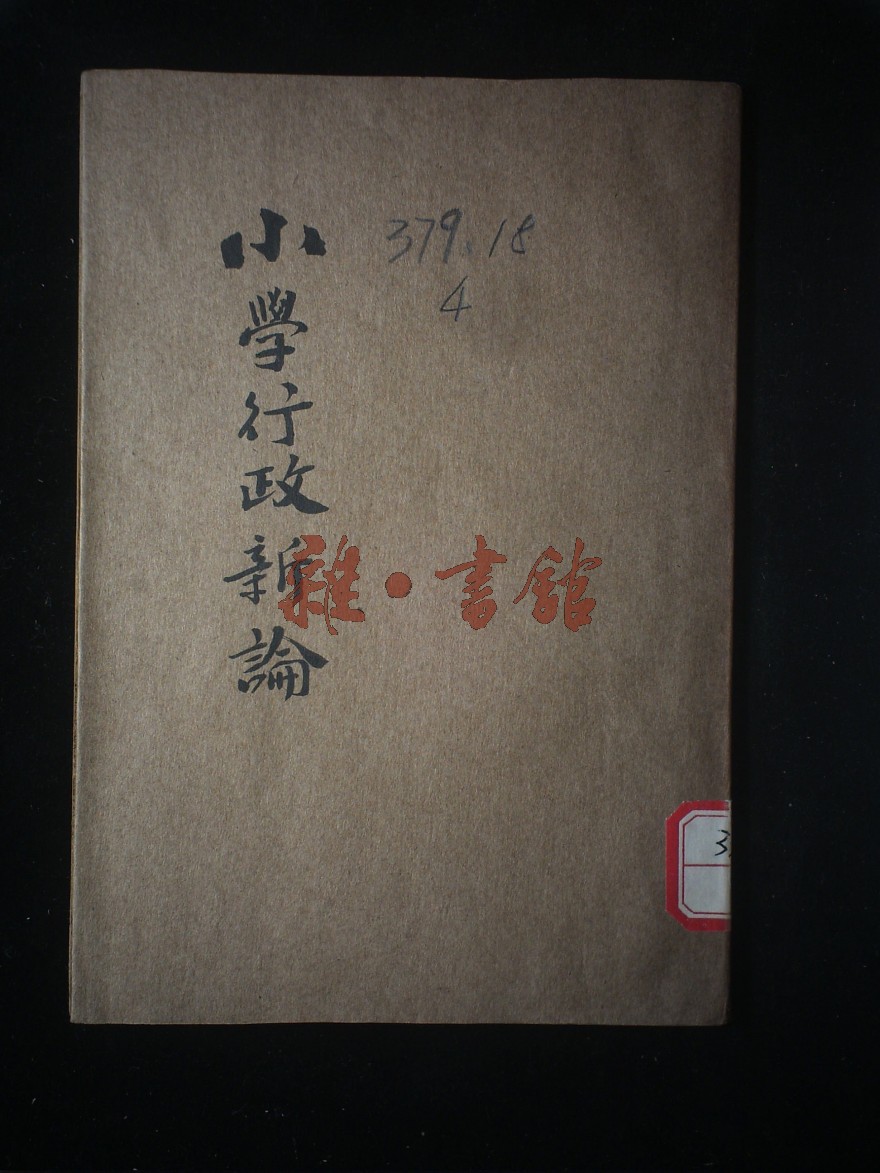 小學行政新論
379.18
4
雜·書館
3